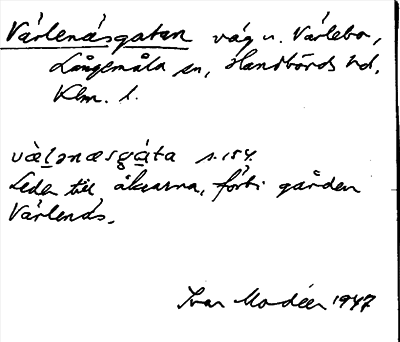 Värlenäsgatan väg u. Värlebo,
Långemåla sn, Handbörds hd,
Klm. l.
vàḷənæsgáta s. 154.
Leder till åkrarna, förbi gården
Värlenäs.
Ivar Modéer 1947